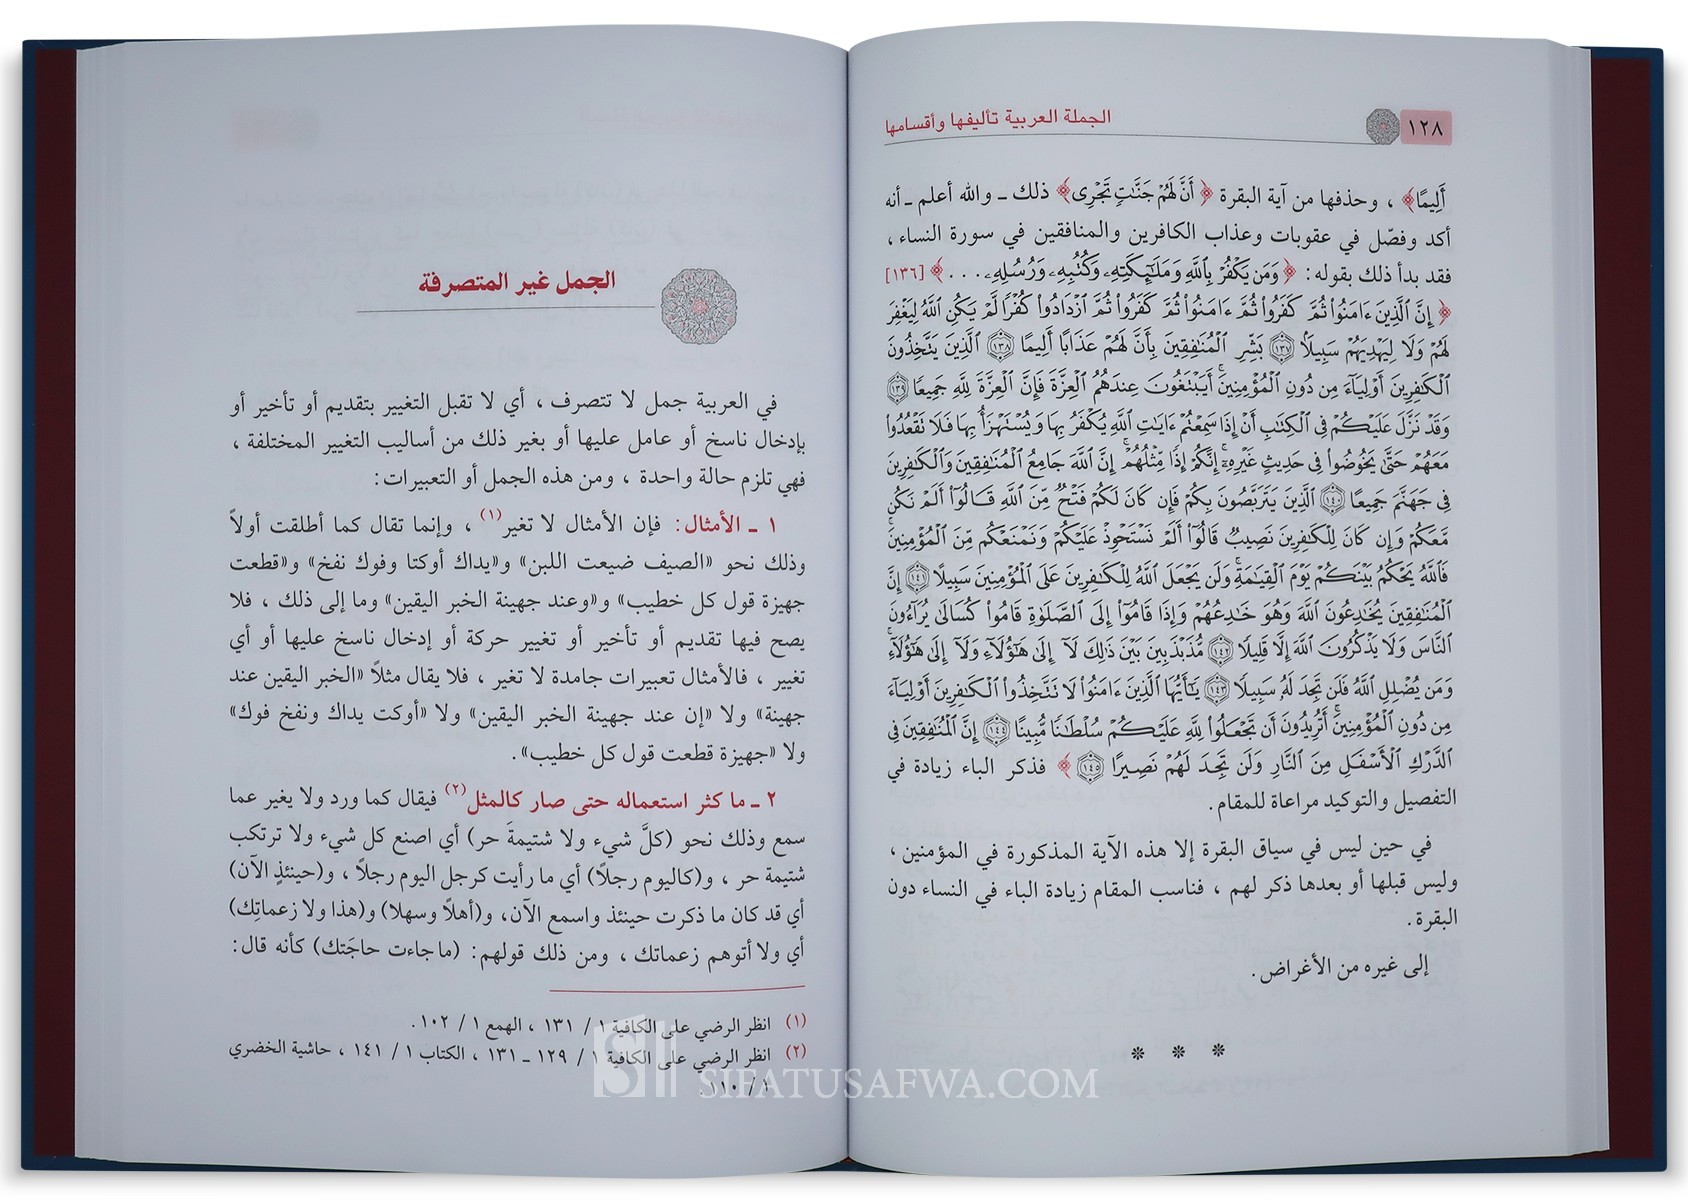 ١٢٨
الجملة العربية تأليفها وأقسامها
أَلِيمًا﴾ ، وحذفها من آية البقرة ﴿ أَنَّ لَهُمْ جَنَّٰتٍ تَجْرِى﴾ ذلك ـ والله أعلم ـ أنه
أكد وفصّل في عقوبات وعذاب الكافرين والمنافقين في سورة النساء ،
فقد بدأ ذلك بقوله : ﴿ وَمَن يَكْفُرْ بِٱللَّهِ وَمَلَٰٓئِكَتِهِۦ وَكُتُبِهِۦ وَرُسُلِهِۦ . . . ﴾ [١٣٦]
﴿ إِنَّ ٱلَّذِينَ ءَامَنُوا۟ ثُمَّ كَفَرُوا۟ ثُمَّ ءَامَنُوا۟ ثُمَّ كَفَرُوا۟ ثُمَّ ٱزْدَادُوا۟ كُفْرًا لَّمْ يَكُنِ ٱللَّهُ لِيَغْفِرَ
لَهُمْ وَلَا لِيَهْدِيَهُمْ سَبِيلًۢا ١٣٧ بَشِّرِ ٱلْمُنَٰفِقِينَ بِأَنَّ لَهُمْ عَذَابًا أَلِيمًا ١٣٨ ٱلَّذِينَ يَتَّخِذُونَ
ٱلْكَٰفِرِينَ أَوْلِيَآءَ مِن دُونِ ٱلْمُؤْمِنِينَ ۚ أَيَبْتَغُونَ عِندَهُمُ ٱلْعِزَّةَ فَإِنَّ ٱلْعِزَّةَ لِلَّهِ جَمِيعًا ١٣٩
وَقَدْ نَزَّلَ عَلَيْكُمْ فِى ٱلْكِتَٰبِ أَنْ إِذَا سَمِعْتُمْ ءَايَٰتِ ٱللَّهِ يُكْفَرُ بِهَا وَيُسْتَهْزَأُ بِهَا فَلَا تَقْعُدُوا۟
مَعَهُمْ حَتَّىٰ يَخُوضُوا۟ فِى حَدِيثٍ غَيْرِهِۦٓ ۚ إِنَّكُمْ إِذًا مِّثْلُهُمْ ۗ إِنَّ ٱللَّهَ جَامِعُ ٱلْمُنَٰفِقِينَ وَٱلْكَٰفِرِينَ
فِى جَهَنَّمَ جَمِيعًا ١٤٠ ٱلَّذِينَ يَتَرَبَّصُونَ بِكُمْ فَإِن كَانَ لَكُمْ فَتْحٌ مِّنَ ٱللَّهِ قَالُوٓا۟ أَلَمْ نَكُن
مَّعَكُمْ وَإِن كَانَ لِلْكَٰفِرِينَ نَصِيبٌ قَالُوٓا۟ أَلَمْ نَسْتَحْوِذْ عَلَيْكُمْ وَنَمْنَعْكُم مِّنَ ٱلْمُؤْمِنِينَ ۚ
فَٱللَّهُ يَحْكُمُ بَيْنَكُمْ يَوْمَ ٱلْقِيَٰمَةِ ۗ وَلَن يَجْعَلَ ٱللَّهُ لِلْكَٰفِرِينَ عَلَى ٱلْمُؤْمِنِينَ سَبِيلًا ١٤١ إِنَّ
ٱلْمُنَٰفِقِينَ يُخَٰدِعُونَ ٱللَّهَ وَهُوَ خَٰدِعُهُمْ وَإِذَا قَامُوٓا۟ إِلَى ٱلصَّلَوٰةِ قَامُوا۟ كُسَالَىٰ يُرَآءُونَ
ٱلنَّاسَ وَلَا يَذْكُرُونَ ٱللَّهَ إِلَّا قَلِيلًا ١٤٢ مُّذَبْذَبِينَ بَيْنَ ذَٰلِكَ لَآ إِلَىٰ هَٰٓؤُلَآءِ وَلَآ إِلَىٰ هَٰٓؤُلَآءِ ۚ
وَمَن يُضْلِلِ ٱللَّهُ فَلَن تَجِدَ لَهُۥ سَبِيلًا ١٤٣ يَٰٓأَيُّهَا ٱلَّذِينَ ءَامَنُوا۟ لَا تَتَّخِذُوا۟ ٱلْكَٰفِرِينَ أَوْلِيَآءَ
مِن دُونِ ٱلْمُؤْمِنِينَ ۚ أَتُرِيدُونَ أَن تَجْعَلُوا۟ لِلَّهِ عَلَيْكُمْ سُلْطَٰنًا مُّبِينًا ١٤٤ إِنَّ ٱلْمُنَٰفِقِينَ فِى
ٱلدَّرْكِ ٱلْأَسْفَلِ مِنَ ٱلنَّارِ وَلَن تَجِدَ لَهُمْ نَصِيرًا ١٤٥ ﴾ فذكر الباء زيادة في
التفصيل والتوكيد مراعاة للمقام .
في حين ليس في سياق البقرة إلا هذه الآية المذكورة في المؤمنين ،
وليس قبلها أو بعدها ذكر لهم ، فناسب المقام زيادة الباء في النساء دون
البقرة .
إلى غيره من الأغراض .
* * *
الجمل غير المتصرفة
في العربية جمل لا تتصرف ، أي لا تقبل التغيير بتقديم أو تأخير أو
بإدخال ناسخ أو عامل عليها أو بغير ذلك من أساليب التغيير المختلفة ،
فهي تلزم حالة واحدة ، ومن هذه الجمل أو التعبيرات :
١ ـ الأمثال : فإن الأمثال لا تغير(١) ، وإنما تقال كما أطلقت أولاً
وذلك نحو «الصيف ضيعت اللبن» و«يداك أوكتا وفوك نفخ» و«قطعت
جهيزة قول كل خطيب» و«وعند جهينة الخبر اليقين» وما إلى ذلك ، فلا
يصح فيها تقديم أو تأخير أو تغيير حركة أو إدخال ناسخ عليها أو أي
تغيير ، فالأمثال تعبيرات جامدة لا تغير ، فلا يقال مثلاً «الخبر اليقين عند
جهينة» ولا «إن عند جهينة الخبر اليقين» ولا «أوكت يداك ونفخ فوك»
ولا «جهيزة قطعت قول كل خطيب» .
٢ ـ ما كثر استعماله حتى صار كالمثل(٢) فيقال كما ورد ولا يغير عما
سمع وذلك نحو (كلَّ شيء ولا شتيمةَ حر) أي اصنع كل شيء ولا ترتكب
شتيمة حر ، و(كاليوم رجلاً) أي ما رأيت كرجل اليوم رجلاً ، و(حينئذٍ الآن)
أي قد كان ما ذكرت حينئذ واسمع الآن، و(أهلاً وسهلا) و(هذا ولا زعماتِك)
أي ولا أتوهم زعماتك ، ومن ذلك قولهم : (ما جاءت حاجَتك) كأنه قال :
(١) انظر الرضي على الكافية ١ / ١٣١ ، الهمع ١ / ١٠٢ .
(٢) انظر الرضي على الكافية ١ / ١٢٩ ـ ١٣١ ، الكتاب ١ / ١٤١ ، حاشية الخضري
١ / ١١٠ .
SIFATUSAFWA.COM